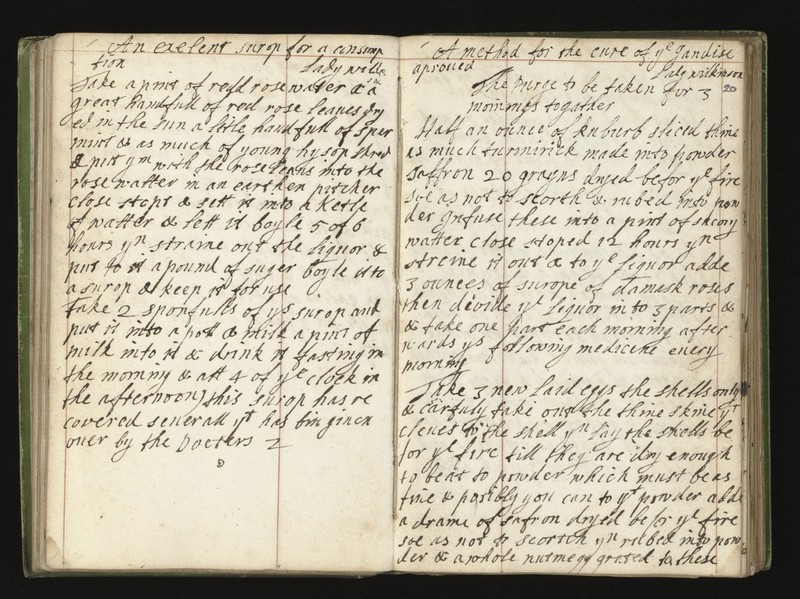 An exelent surop for a consump
tion Lady wilkn
son
Take a pint of redd rose watter & a
great handfull of red rose leaves dry
ed in the sun a litle handfull of sper
mint & as much of young hysop shred
& put ym with the rose leavs into the
rose watter in an earthen pitcher
close stopt & sett it into a Ketle
of watter & lett it boyle 5 of 6
hours yn straine out the liquor &
put to it a pound of suger boyle it to
a surop & keep it for use
Take 2 sponfulls of ys surop and
put it into a pott & milk a pint of
milk into it & drink it fasting in
the morning & att 4 of ye clock in
the afternoon) this surop has re
covered severall yt has bin given
over by the Docters 2
A method for the cure of ye Jandise
aproved Lady wilkinson
The purge to be taken for 3 20
mornings togather
Half an ounce of Ruburb sliced thine
as much turmirick made into powder
saffron 20 grayns dryed befor ye fire
soe as not to scorth & rubed into pow
der infuse these into a pint of
watter close stoped 12 hours yn
streine it out & to ye liquor adde
3 ounces of surope of damesk roses
then devide ye liquor in to 3 parts &
& take one part each morning after
wards ys following medicine every
morning
Take 3 new laid eggs the shells only
& carfuly take out the thine skine yt
cleves to the shell yn lay the shells be
for ye fire till they are dry enough
to beat to powder which must be as
fine & posibly you can to yt powder adde
a drame of safron dryed befor ye fire
soe as not to scortch yn rubed into pow
der & a whole nutmegg grated to these